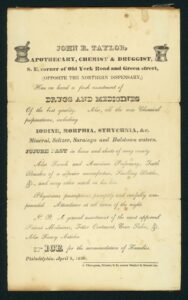 JOHN R. TAYLOR,
APOTHECARY, CHEMIST & DRUGGIST,
S. E. corner of Old York Road and Green street,
(OPPOSITE THE NORTHERN DISPENSARY,)
Has on hand a fresh assortment of
DRUGS AND MEDICINES
Of the best quality. Also, all the new Chemical
preparations, including
IODINE, MORPHIA, STRYCHNIA, &c.
Mineral, Seltzer, Saratoga and Ballston waters.
JUJUBE PASTE in doses and sheets of every description.
Also French and American Perfumery, Tooth
Brushes of a superior manufacture,
&c., and every other article in his line.
Physicians prescriptions promptly and carefully com-
pounded. Attendance at all hours of the night.
N. B. A general assortment of the most approved
Patent Medicines,
Also Fancy Articles.
ICE for the accommodation of Families.
Philadelphia, April 1836.